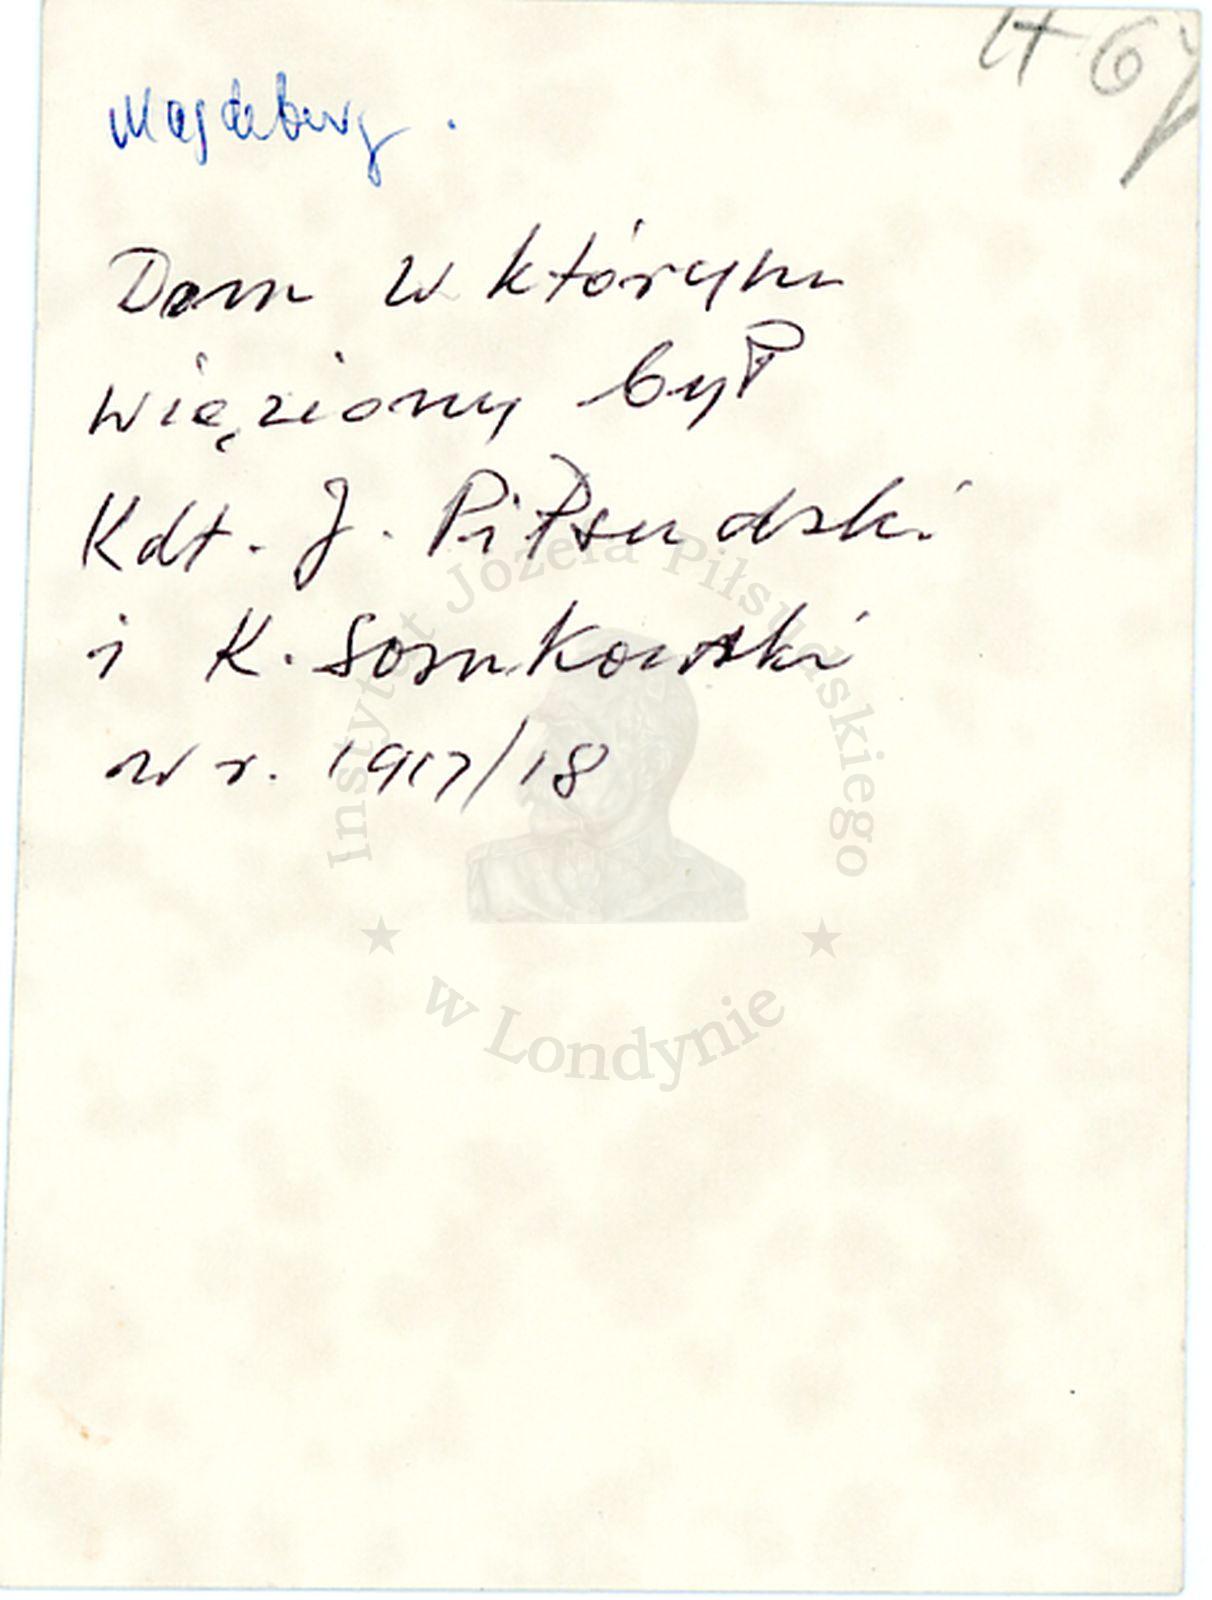 467
Magdeburg.
Dom w którym
więziony był
Kdt. J. Piłsudski
i K. Sosnkowski
w r. 1917/18
Instytut Józefa Piłsudskiego
w Londynie